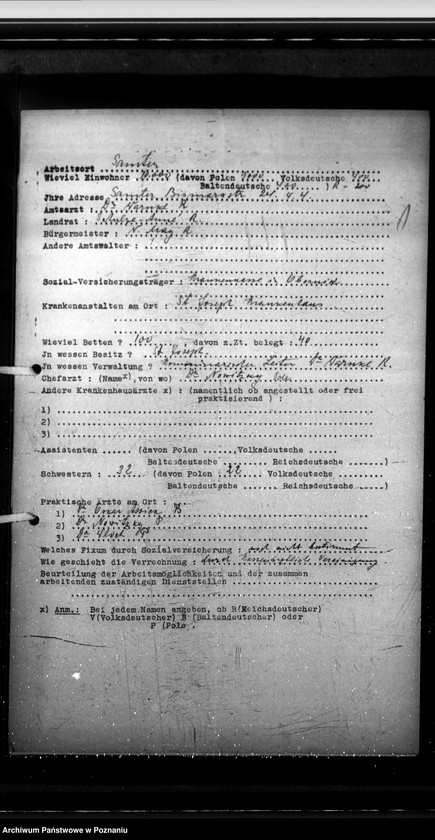 Arbeitsort Samter
Wieviel Einwohner (davon Polen 7000 Volksdeutsche
Baltendeutsche ) R - 200
Jhre Adresse Samter, Bismarckstr. 24
Amtsarzt : Dr. R.
Landrat : R.
Bürgermeister : R.
Andere Amtswalter :
Sozial-Versicherungsträger : in
Krankenanstalten am Ort : St. Joseph Krankenhaus
Wieviel Betten ? 100 davon z.Zt. belegt : 40
Jn wessen Besitz ? St. Joseph
Jn wessen Verwaltung ? Kommissarischer Leiter Dr. R.
Chefarzt : (Name x), von wo) Dr. Nowitzky
Andere Krankenhausärzte x) : (namentlich ob angestellt oder frei
praktisierend ) :
1)
2)
3)
Assistenten (davon Polen , Volksdeutsche
Baltendeutsche Reichsdeutsche )
Schwestern : 22 (davon Polen : 22 Volksdeutsche
Baltendeutsche Reichsdeutsche )
Praktische Ärzte am Ort :
1) Dr. B
2) Dr. Nowitzky P
3) Dr.
Welches Fixum durch Sozialversicherung : noch nicht bestimmt
Wie geschieht die Verrechnung : durch Kassenärztliche Vereinigung
Beurteilung der Arbeitsmöglichkeiten und der zusammen
arbeitenden zuständigen Dienststellen
x) Anm.: Bei jedem Namen angeben, ob R(Reichsdeutscher)
V(Volksdeutscher) B (Baltendeutscher) oder
P (Pole .
Archiwum Państwowe w Poznaniu